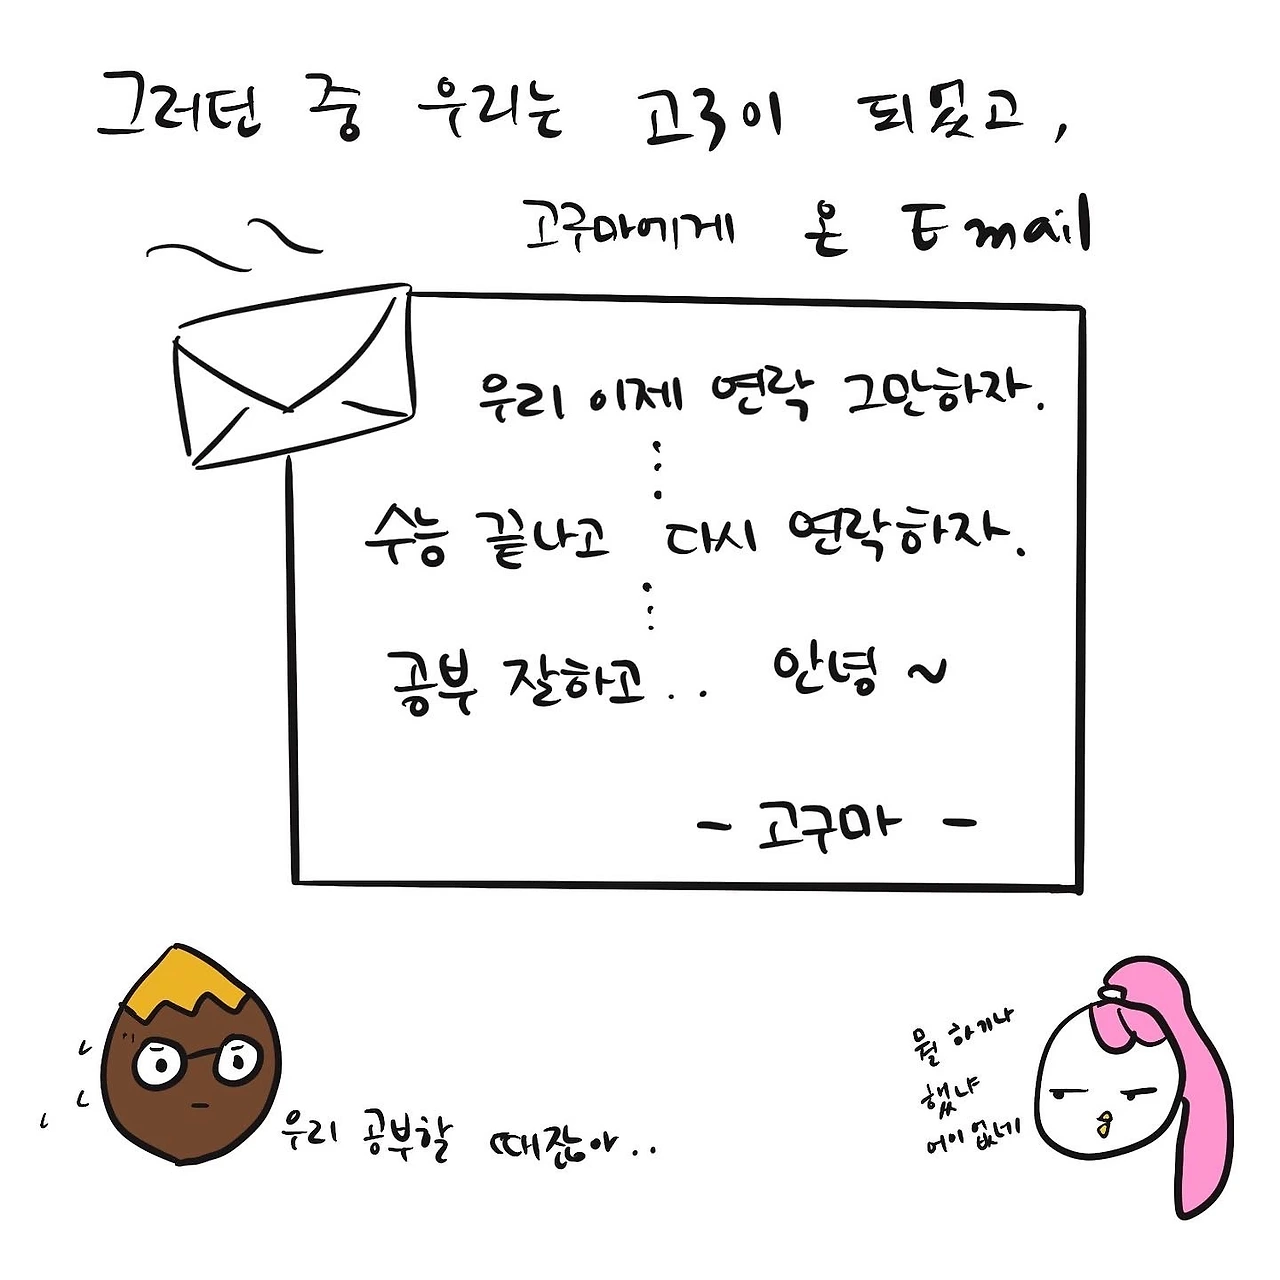 그러던 중 우리는 고3이 되었고,
고구마에게 온 Email
우리 이제 연락 그만하자.
수능 끝나고 다시 연락하자.
공부 잘하고.. 안녕~
- 고구마 -
우리 공부할 때잖아..
뭘 하기나
했냐
어이없네